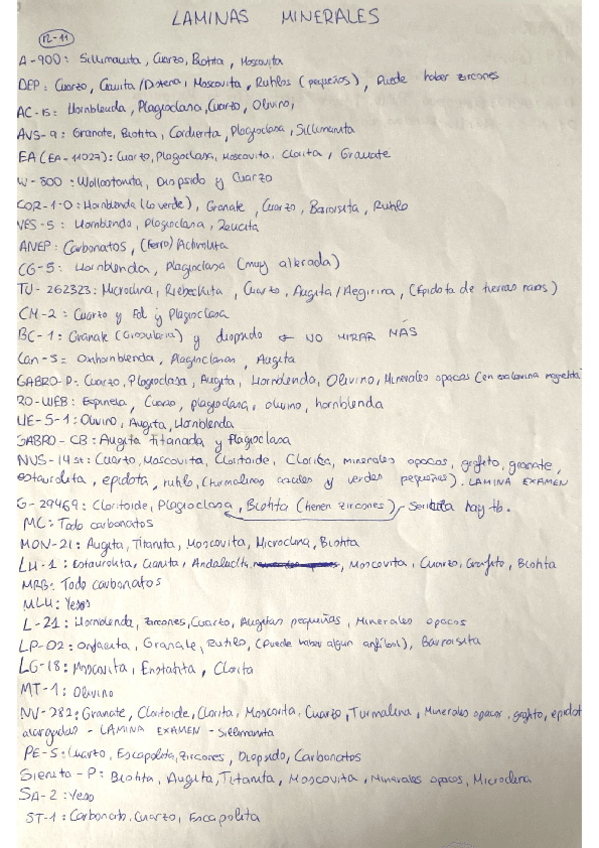 LAMINAS MINERALES
12-11
A-900: Sillimanita, Cuarzo, Biotita, Moscovita
DEP: Cuarzo, Cianita/Distena, Moscovita, Rutilos (pequeños), Puede haber zircones
AC-15: Hornblenda, Plagioclasa, Cuarzo, Olivino,
AVS-9: Granate, Biotita, Cordierita, Plagioclasa, Sillimanita
EA (EA-11027): Cuarzo, Plagioclasa, Moscovita, Clorita, Granate
W-800: Wollastonita, Diopsido y Cuarzo
COR-1-0: Hornblenda (lo verde), Granate, Cuarzo, Baroisita, Rutilo
VES-5: Hornblenda, Plagioclasa, Leucita
ANEP: Carbonatos, (ferro) Actinolita
CG-5: Hornblenda, Plagioclasa (muy alterada)
TU-262323: Microclina, Riebeckita, Cuarzo, Augita/Aegirina, (Epidota de tierras raras)
CM-2: Cuarzo y Fd y Plagioclasa
BC-1: Granate (Grosularia) y diopsido ← NO MIRAR MÁS
Can-5: Oxihornblenda, Plagioclasas, Augita
GABRO-P: Cuarzo, Plagioclasa, Augita, Hornblenda, Olivino, Minerales opacos (en magnetita
RO-WEB: Espinela, Cuarzo, plagioclasa, olivino, hornblenda
UE-5-1: Olivino, Augita, Hornblenda
GABRO-CB: Augita titanada y Plagioclasa
NVS-14st: Cuarzo, Moscovita, Cloritoide, Clorita, minerales opacos, grafito, granate,
estaurolita, epidota, rutilo, (turmalinas azules y verdes pequeñas). LAMINA EXAMEN
G-29469: Cloritoide, Plagioclasa, Biotita (tienen zircones) hay tb.
MC: Todo carbonatos
MON-21: Augita, Titanita, Moscovita, Microclina, Biotita
LH-1: Estaurolita, Cianita, Andalucita, Moscovita, Cuarzo, Grafito, Biotita
MRB: Todo carbonatos
MLH: Yesos
L-21: Hornblenda, zircones, Cuarzo, Augitas pequeñas, Minerales opacos
LP-02: Onfacita, Granate, Rutilo, (Puede haber algun anfibol), Barroisita
LG-18: Moscovita, Enstatita, Clorita
MT-1: Olivino
NV-282: Granate, Cloritoide, Clorita, Moscovita, Cuarzo, Turmalina, Minerales opacos, grafito, epidot
alargadas - LAMINA EXAMEN - Sillimanita
PE-5: Cuarzo, Escapolita, zircones, Diopsido, Carbonatos
Sienita-P: Biotita, Augita, Titanita, Moscovita, Minerales opacos, Microclina
SA-2: Yeso
ST-1: Carbonato, Cuarzo, Escapolita